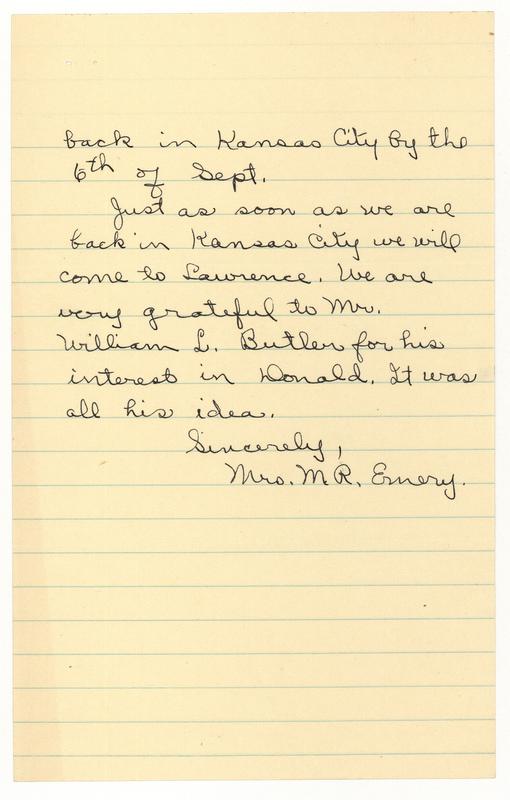 back in Kansas City by the
6th of Sept.
Just as soon as we are
back in Kansas City we will
come to Lawrence. We are
very grateful to Mr.
William L. Butler for his
interest in Donald. It was
all his idea.
Sincerely,
Mrs. M.R. Emery.